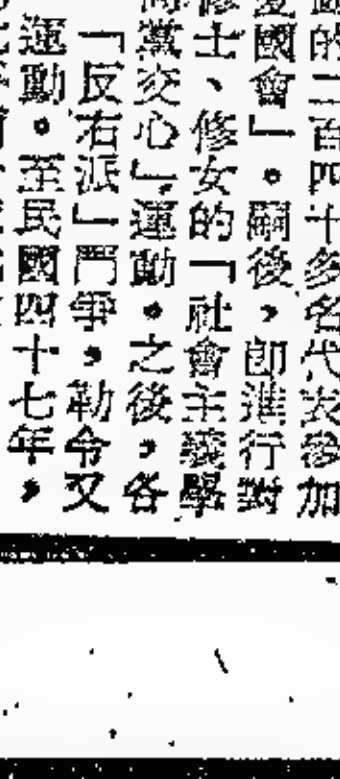 的二百四十多名代表參加
國會」。嗣後，卽進行對
士、修女的「社會主義學
黨交心」運動。之後，各
「反右派」鬥爭，勒令又
運動。至民國四十七年，